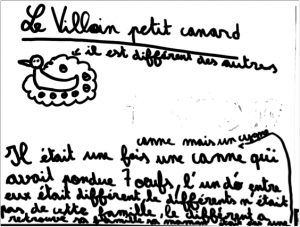 Le Villain petit canard
il est différent des autres
canne mais un cygne
Il était une fois une canne qui
avait pondue 7 oeufs, l'un dé entre
eux était différent, le différents n'était
pas, de cette famille, le différent a
retrouvé sa famille sa maman était pas une